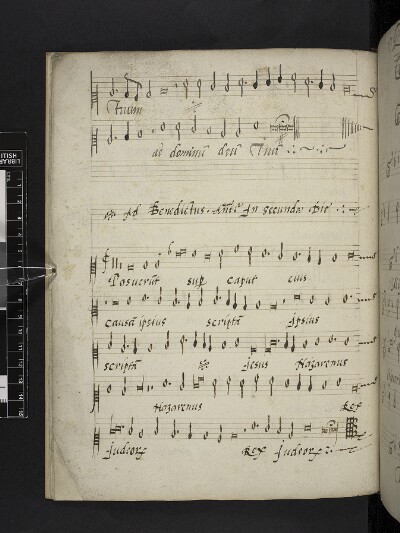 Tuum
ad dominū deū Tuū
Ad Benedictus. Antī In secunda Die
Posuerūt sup caput eius
causā ipsius scriptā Ipsius
scriptā Jesus Nazarenus
Nazarenus Rex
Judeorꝝ Rex Judeorꝝ